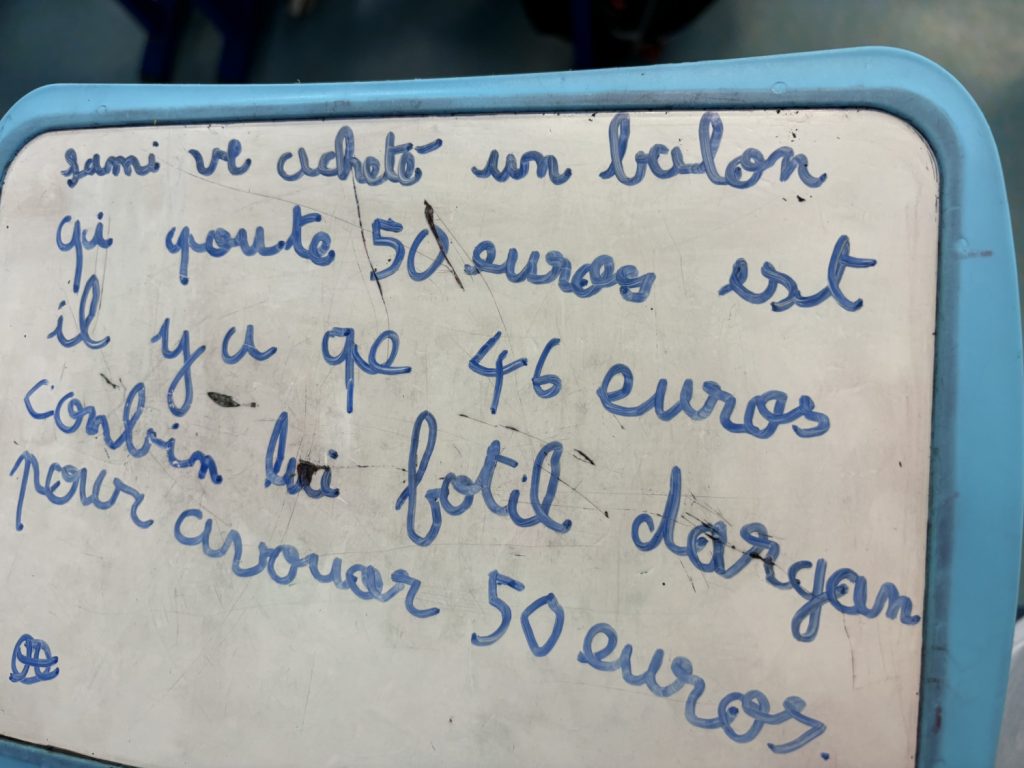 sami ve acheté un balon
qi qoute 50 euros est
il y a qe 46 euros
conbin lui fotil dargan
pour avouar 50 euros.